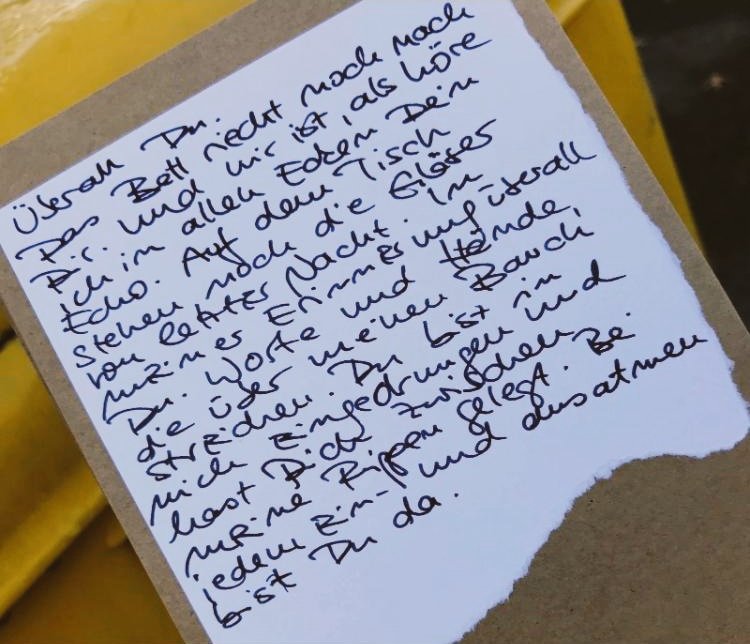 Überall Du.
Das Bett riecht noch nach
Dir. Und mir ist, als höre
ich in allen Ecken Dein
Echo. Auf dem Tisch
stehen noch die Gläser
von letzter Nacht. In
meiner Erinnerung überall
Du. Worte und Hände,
die über meinen Bauch
streichen. Du bist in
mich eingedrungen und
hast Dich zwischen
meine Rippen gelegt. Bei
jedem Ein- und Ausatmen
bist Du da.